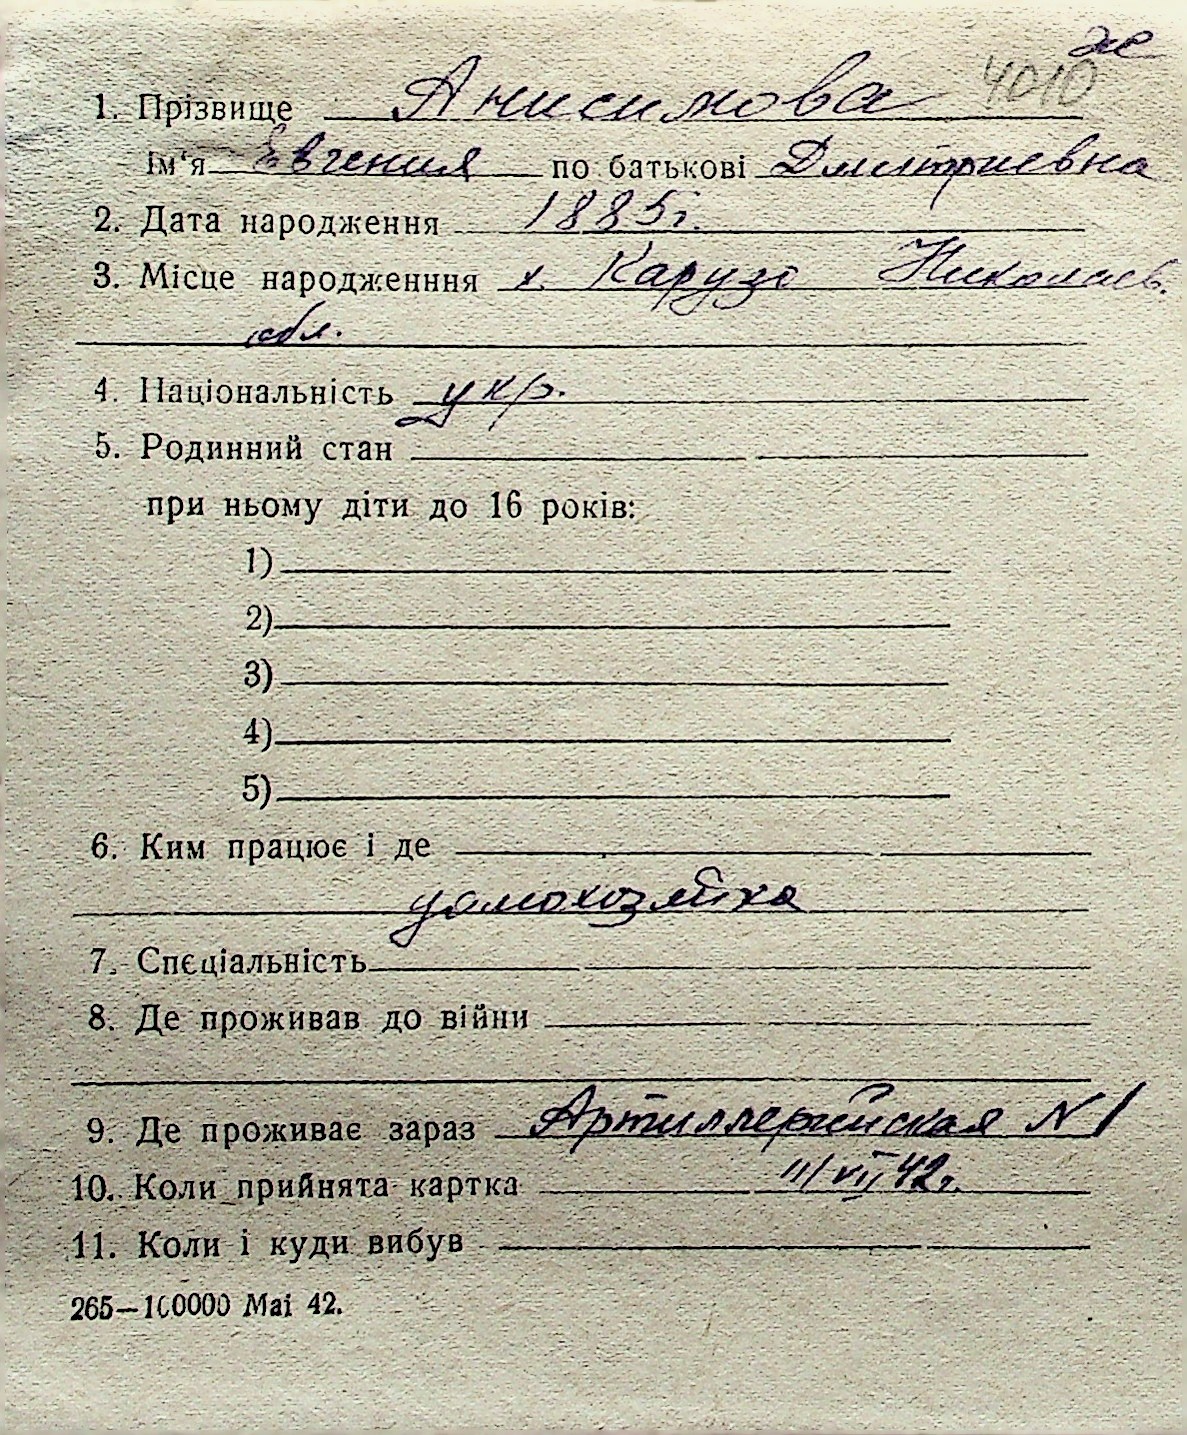 же
1. Прізвище Анисимова 4010
Ім'я Евгения по батькові Дмитриевна
2. Дата народження 1885г.
3. Місце народженння х. Карузо Николаев.
обл.
4. Національність укр.
5. Родинний стан
при ньому діти до 16 років:
1)
2)
3)
4)
5)
6. Ким працює і де
домохозяйка
7. Спєціальність
8. Де проживав до війни
9. Де проживає зараз Артиллерийская N 1
10. Коли прийнята картка 11/VII 42г.
11. Коли і куди вибув
265—100000 Mai 42.